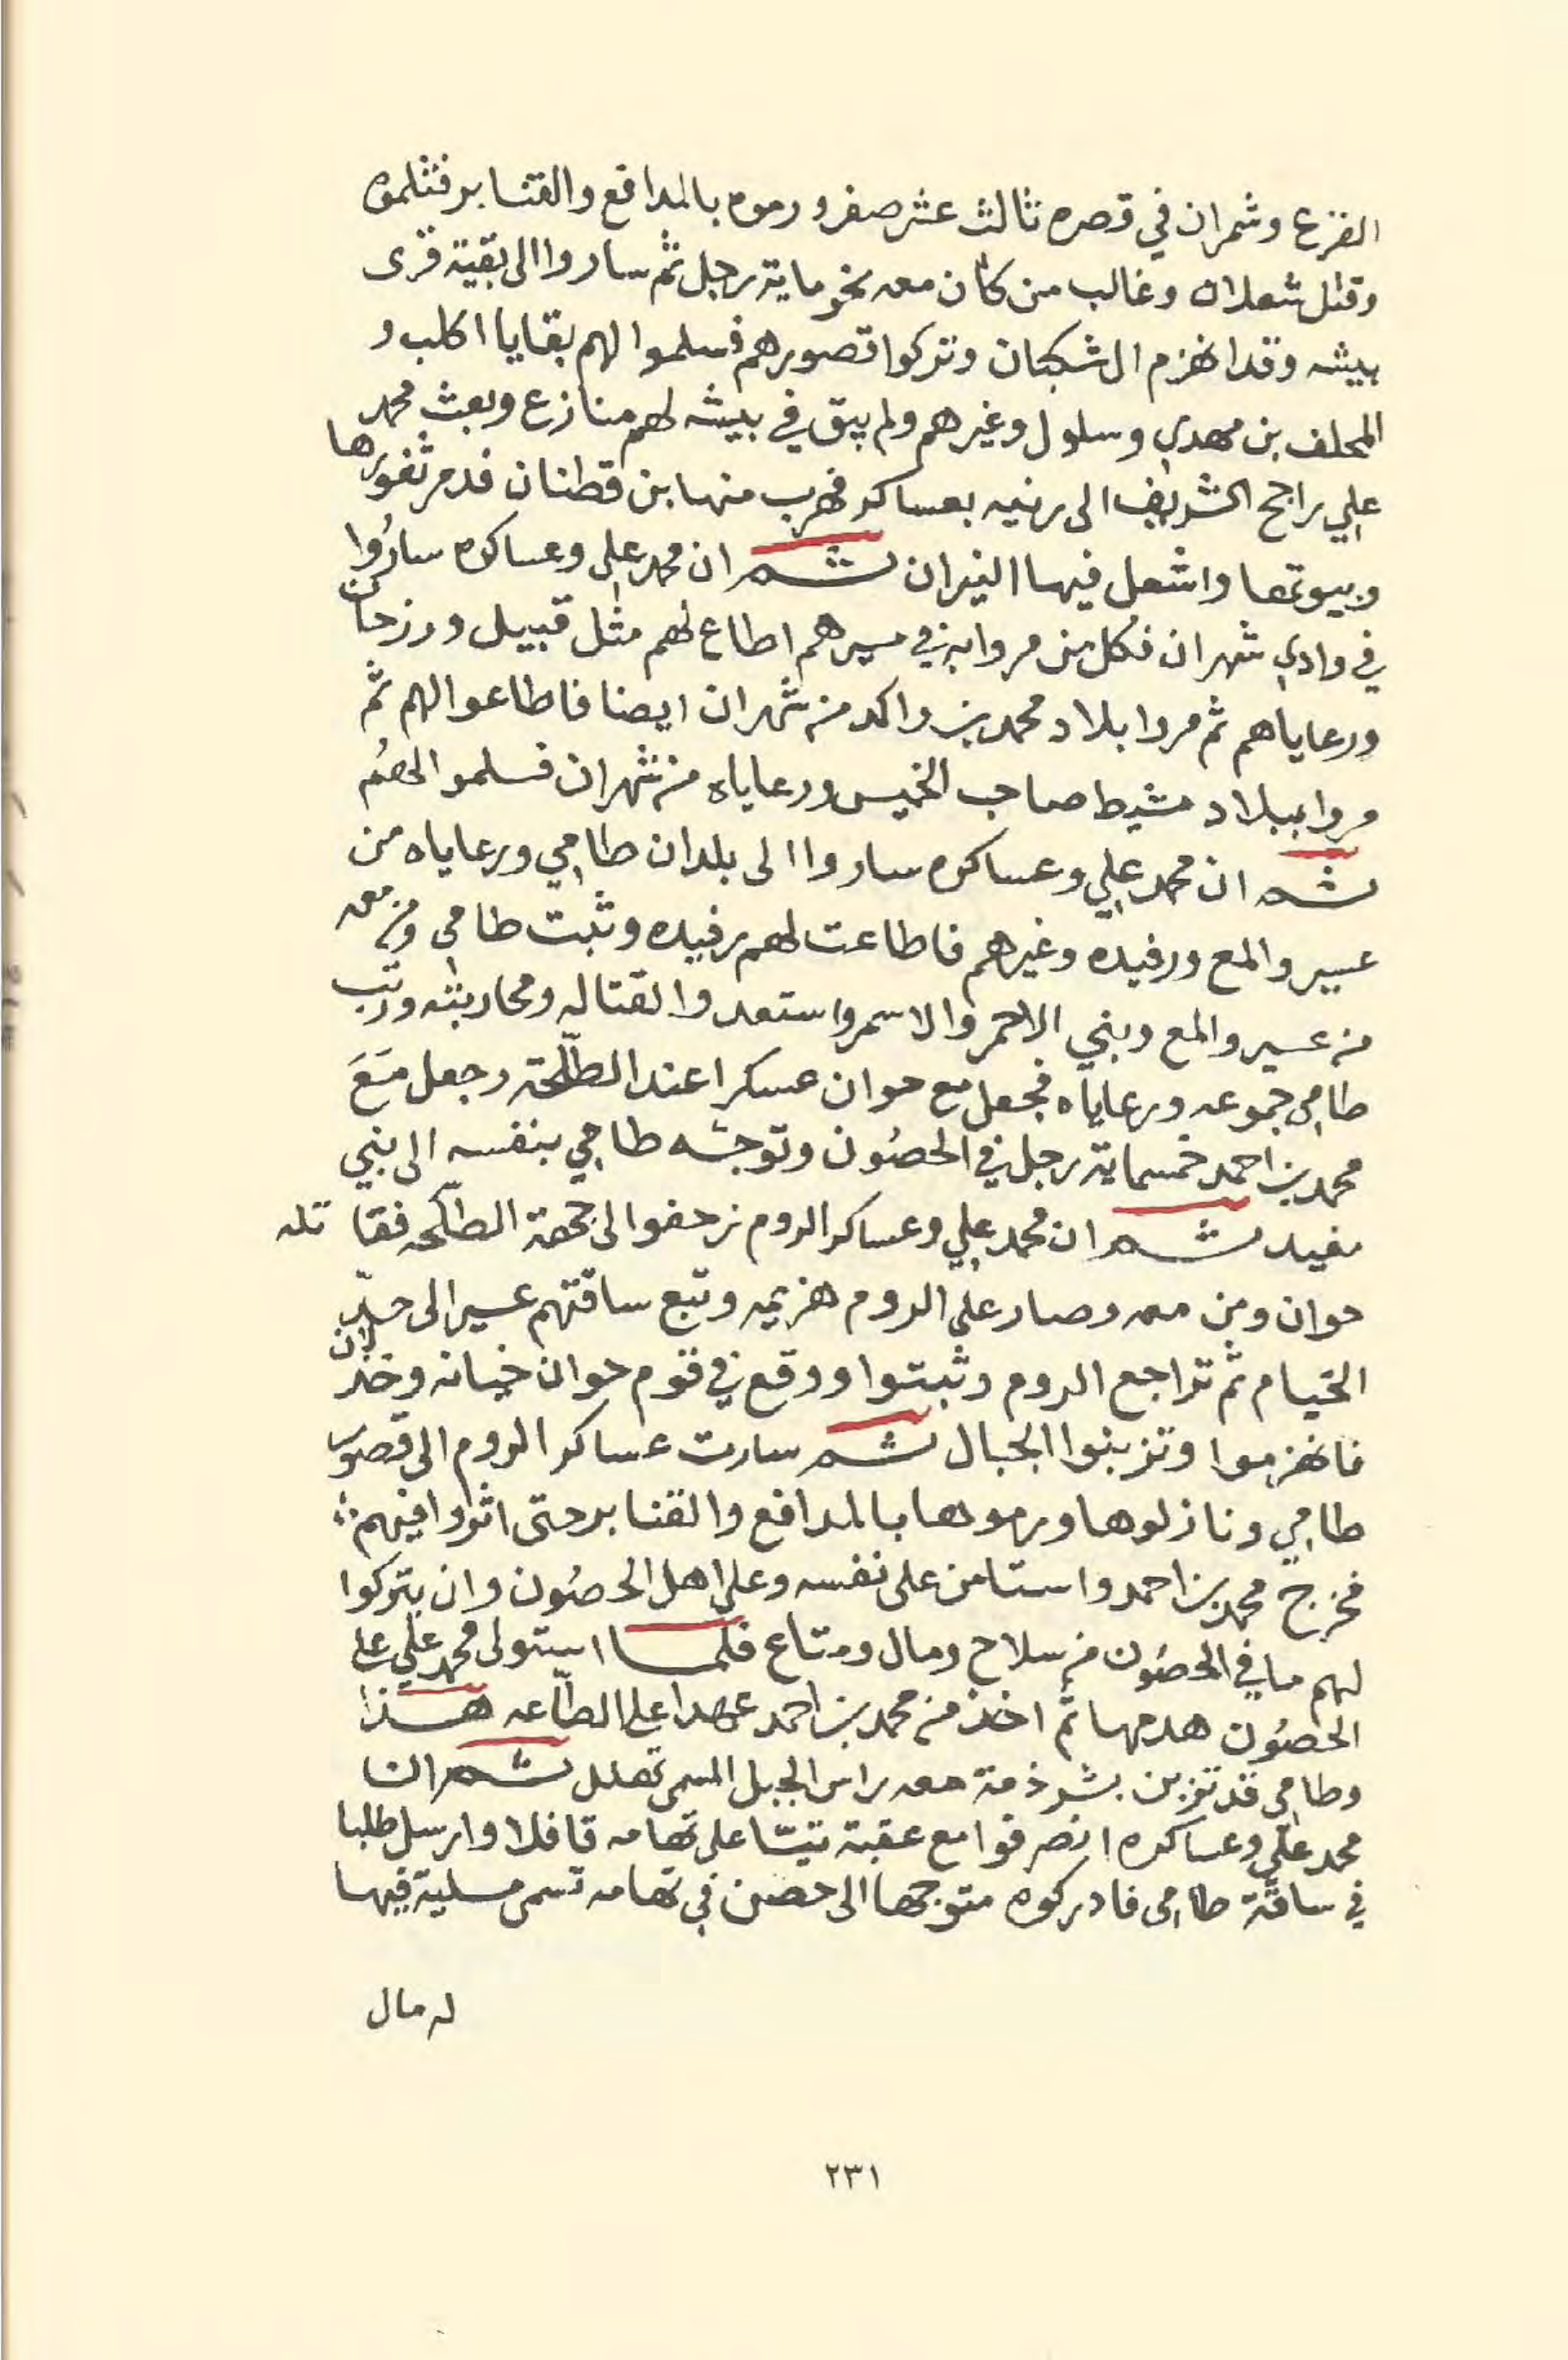 الفزع وشمران في قصره ثالث عشر صفر ورموه بالمدافع والقنابر فثلموه
وقتل شعلان وغالب من كان معه نحو ماية رجل ثم ساروا الى بقية قرى
بيشه وقد انهزم ال شكبان وتركوا قصورهم فسلموا لهم بقايا اكلب و
المحلف بن مهدي وسلول وغيرهم ولم يبق في بيشه لهم منازع وبعث محمد
علي راجح الشريف الى رنيه بعساكر فهرب منها بن قطنان فدمر ثغورها
وبيوتها واشعل فيها النيران ثم ان محمد علي وعساكره ساروا
في وادي شهران فكل من مروا به في مسيرهم اطاع لهم مثل قبيل ورزحان
ورعاياهم ثم مروا بلاد محمد بن واكد من شهران ايضا فاطاعوا لهم ثم
مروا ببلاد مشيط صاحب الخميس ورعاياه من شهران فسلموا لهم
ثم ان محمد علي وعساكره ساروا الى بلدان طامي ورعاياه من
عسير والمع ورفيده وغيرهم فاطاعت لهم رفيده وثبت طامي ومن معه
من عسير والمع وبني الاحمر والاسمر واستعدوا لقتاله ومحاربته ورتب
طامي جموعه ورعاياه فجعل مع حوان عسكرا عند الطلحة وجعل مع
محمد بن احمد خمسماية رجل في الحصون وتوجه طامي بنفسه الى بني
مفيد ثم ان محمد علي وعساكر الروم زحفوا الى جهة الطلحه فقا تله
حوان ومن معه وصار على الروم هزيمه وتبع ساقتهم عسير الى حد
الخيام ثم تراجع الروم وثبتوا ووقع في قوم حوان خيانه وخذلان
فانهزموا وتزبنوا الجبال ثم سارت عساكر الروم الى قصور
طامي ونازلوها ورموها بالمدافع والقنابر حتى اثروا فيهم
فخرج محمد بن احمد واستامن على نفسه وعلى اهل الحصون وان يتركوا
لهم ما في الحصون من سلاح ومال ومتاع فلما استولى محمد علي على
الحصون هدمها ثم اخذ من محمد بن احمد عهدا على الطاعه هذا
وطامي قد تزبن بشرذمة معه راس الجبل المسمى تهلل ثم ان
محمد علي وعساكره انصرفوا مع عقبة تيتا على تهامه قافلا وارسل طلبا
في ساقة طامي فادركوه متوجها الى حصن في تهامه تسمى مسلية فيها
له مال
٢٣١